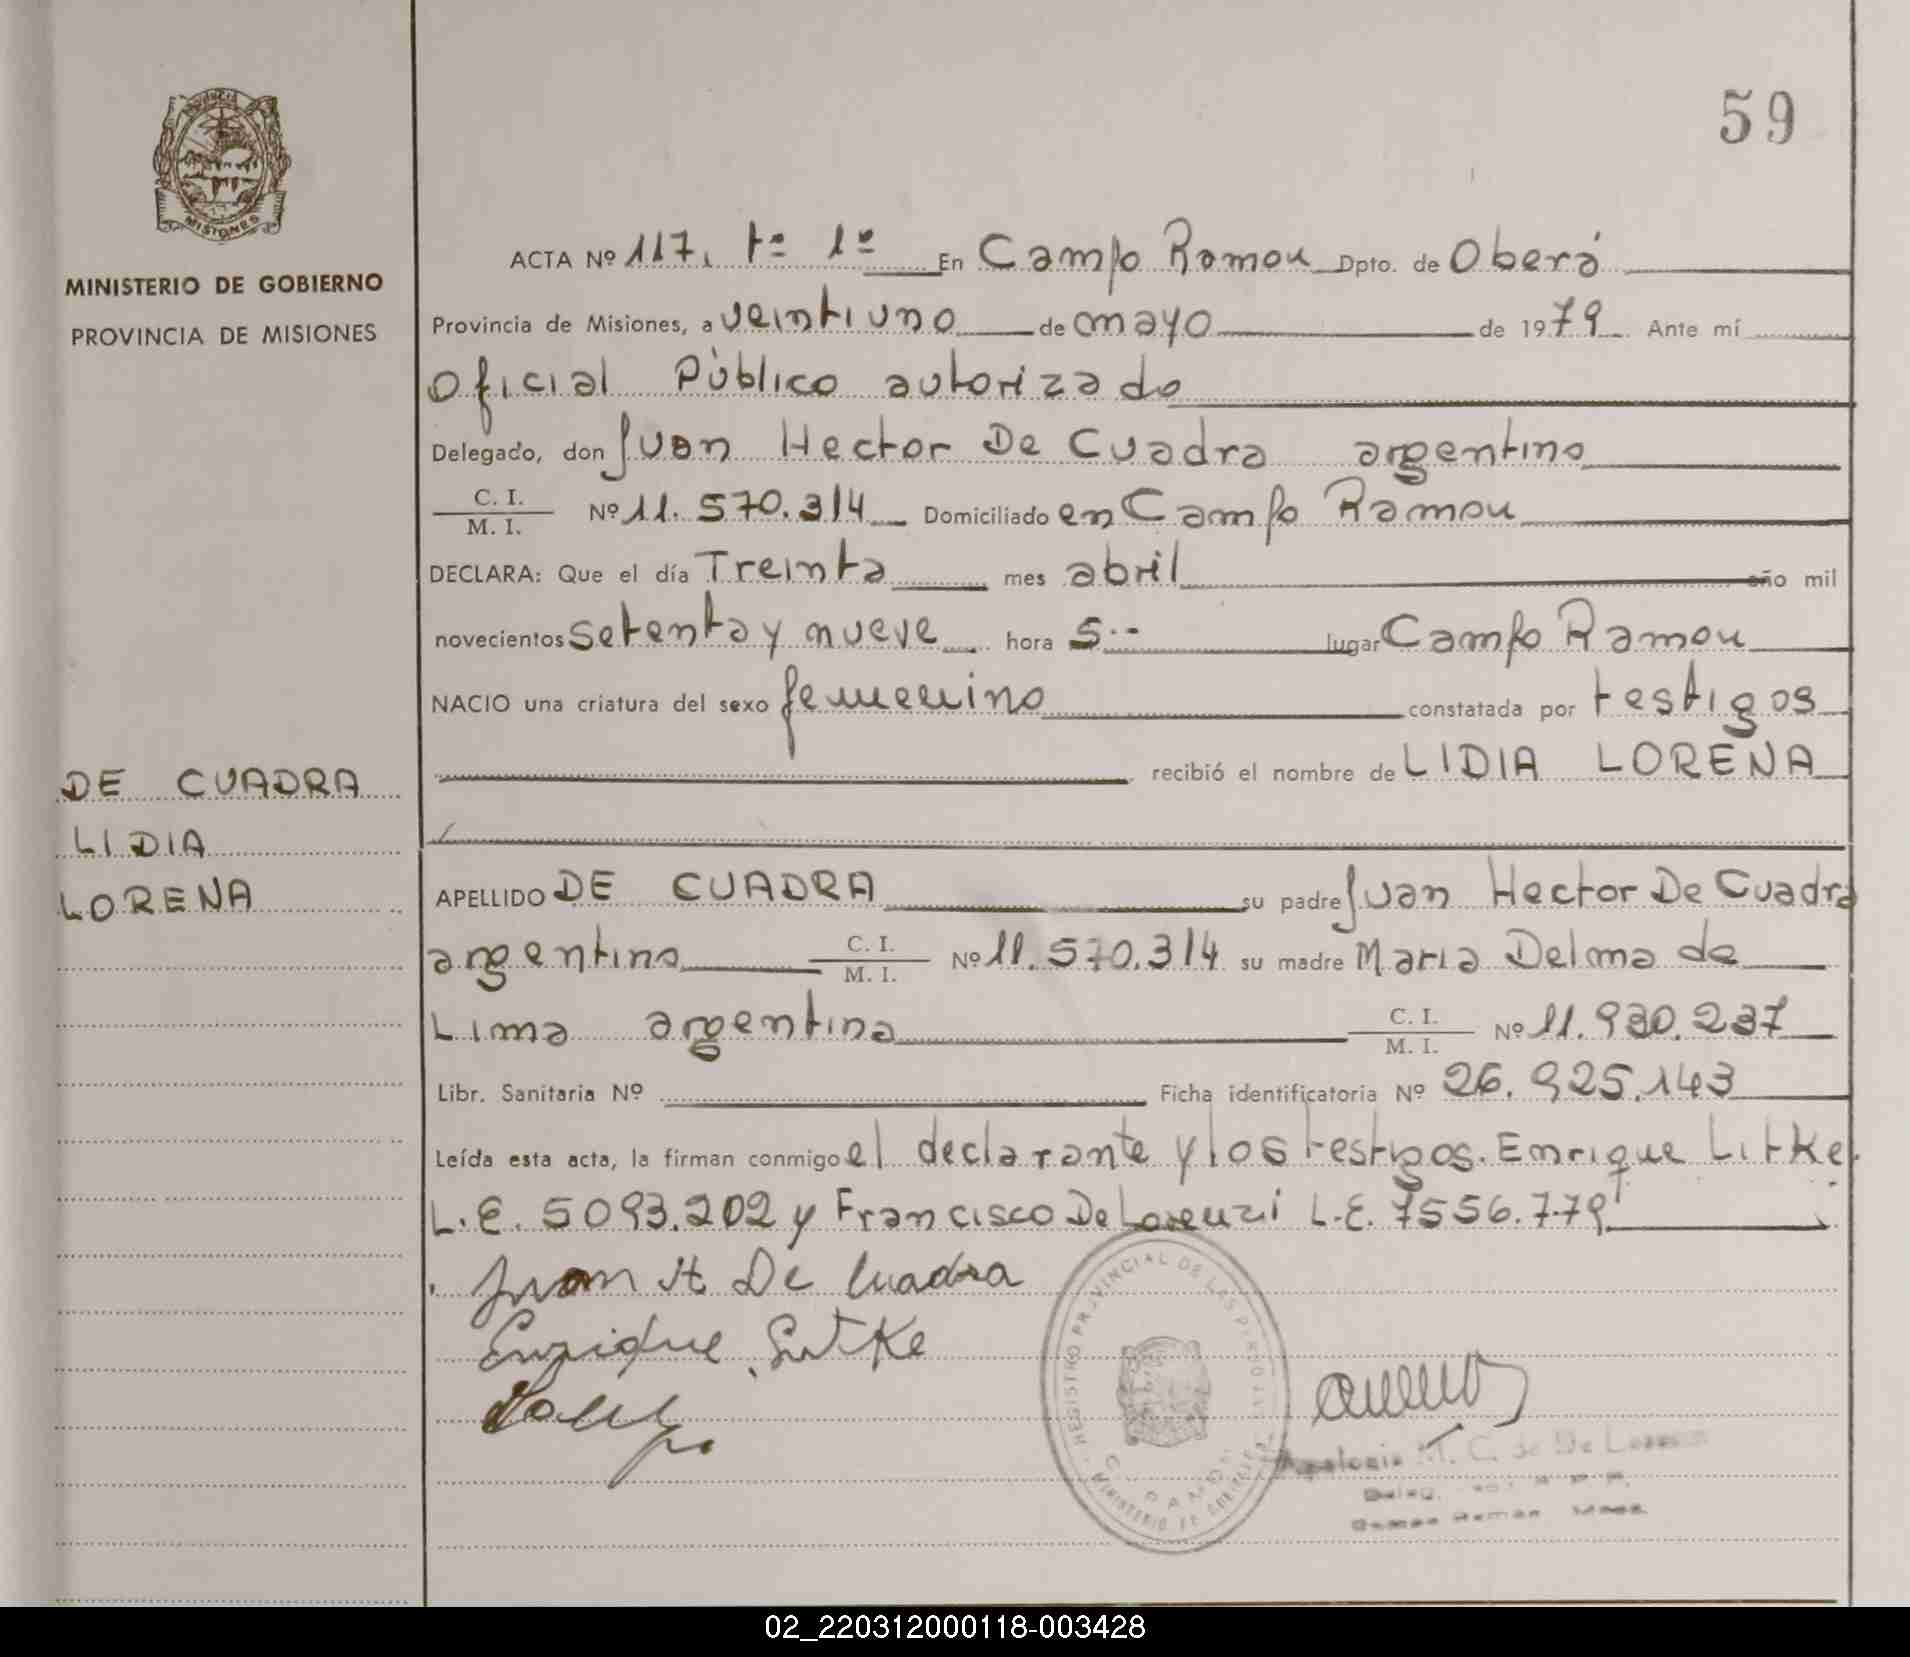 59
MISIONES
MINISTERIO DE GOBIERNO
PROVINCIA DE MISIONES
DE CUADRA
LIDIA
LORENA
ACTA Nº 117, tº 1º En Campo Ramon Dpto. de Oberá
Provincia de Misiones, a veintiuno de mayo de 1979 Ante mí
Oficial Público autorizado
Delegado, don Juan Hector De Cuadra argentino
C. I. / M. I. Nº 11.570.314 Domiciliado en Campo Ramon
DECLARA: Que el día Treinta mes abril año mil
novecientos setenta y nueve hora 5.-- lugar Campo Ramon
NACIO una criatura del sexo femenino constatada por testigos
recibió el nombre de LIDIA LORENA
APELLIDO DE CUADRA su padre Juan Hector De Cuadra
argentino C. I. / M. I. Nº 11.570.314 su madre Maria Delma de
Lima argentina C. I. / M. I. Nº 11.930.237
Libr. Sanitaria Nº Ficha identificatoria Nº 26.925.143
Leída esta acta, la firman conmigo el declarante y los testigos. Enrique Litke
L.E. 5093.202 y Francisco De Lorenzi L.E. 7556.779
Juan H De Cuadra
Enrique Litke
REGISTRO PROVINCIAL DE LAS PERSONAS
MINISTERIO DE GOBIERNO
C. RAMON
M. C. de De
02_220312000118-003428